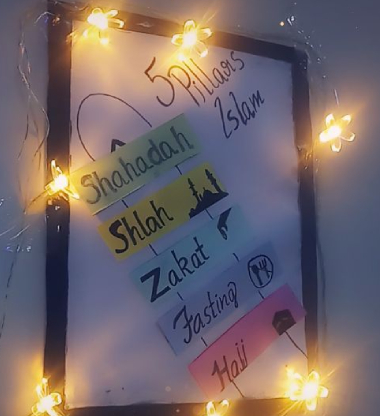 5 Pillars
Islam
Shahadah
Shlah
Zakat
Fasting
Hajj